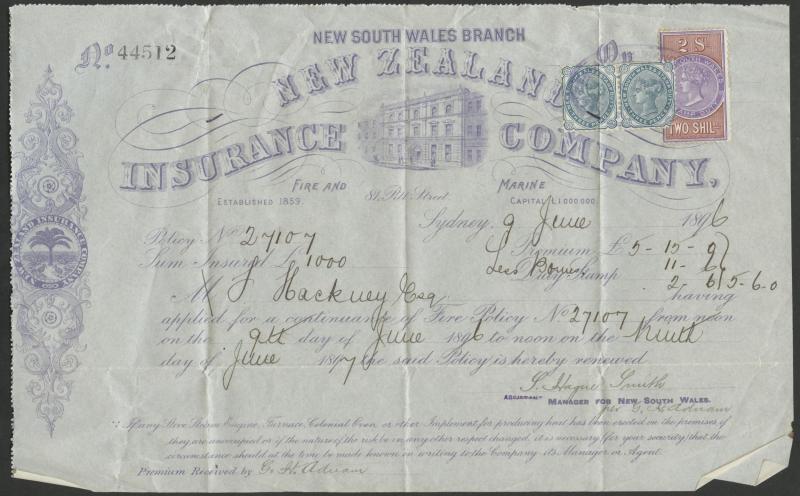 NEW SOUTH WALES BRANCH
No 44512
NEW ZEALAND
2 S
SOUTH WALES
TWO SHIL
INSURANCE COMPANY,
FIRE AND MARINE
ESTABLISHED 1859. 81, Pitt Street CAPITAL £1,000,000
NEW ZEALAND INSURANCE COMPANY
Sydney, 9 June 1896
Policy No 27107 Premium £ 5-15-9
Sum Insured £ 1000 Less Bonus 11-6
Duty Stamp 2-6 5-6-0
M J Hackney Esq having
applied for a continuance of Fire Policy No 27107 from noon
on the 9th day of June 1896 to noon on the Ninth
day of June 1897 the said Policy is hereby renewed
S. Hague Smith
MANAGER FOR NEW SOUTH WALES.
per G. H. Adnam
If any Stove, Steam Engine, Furnace, Colonial Oven or other Implement for producing heat has been erected on the premises of
they are unoccupied or if the nature of the risk be in any other respect changed, it is necessary (for your security) that the
circumstance should at the time be made known in writing to the Company its Manager or Agent.
Premium Received by G. H. Adnam